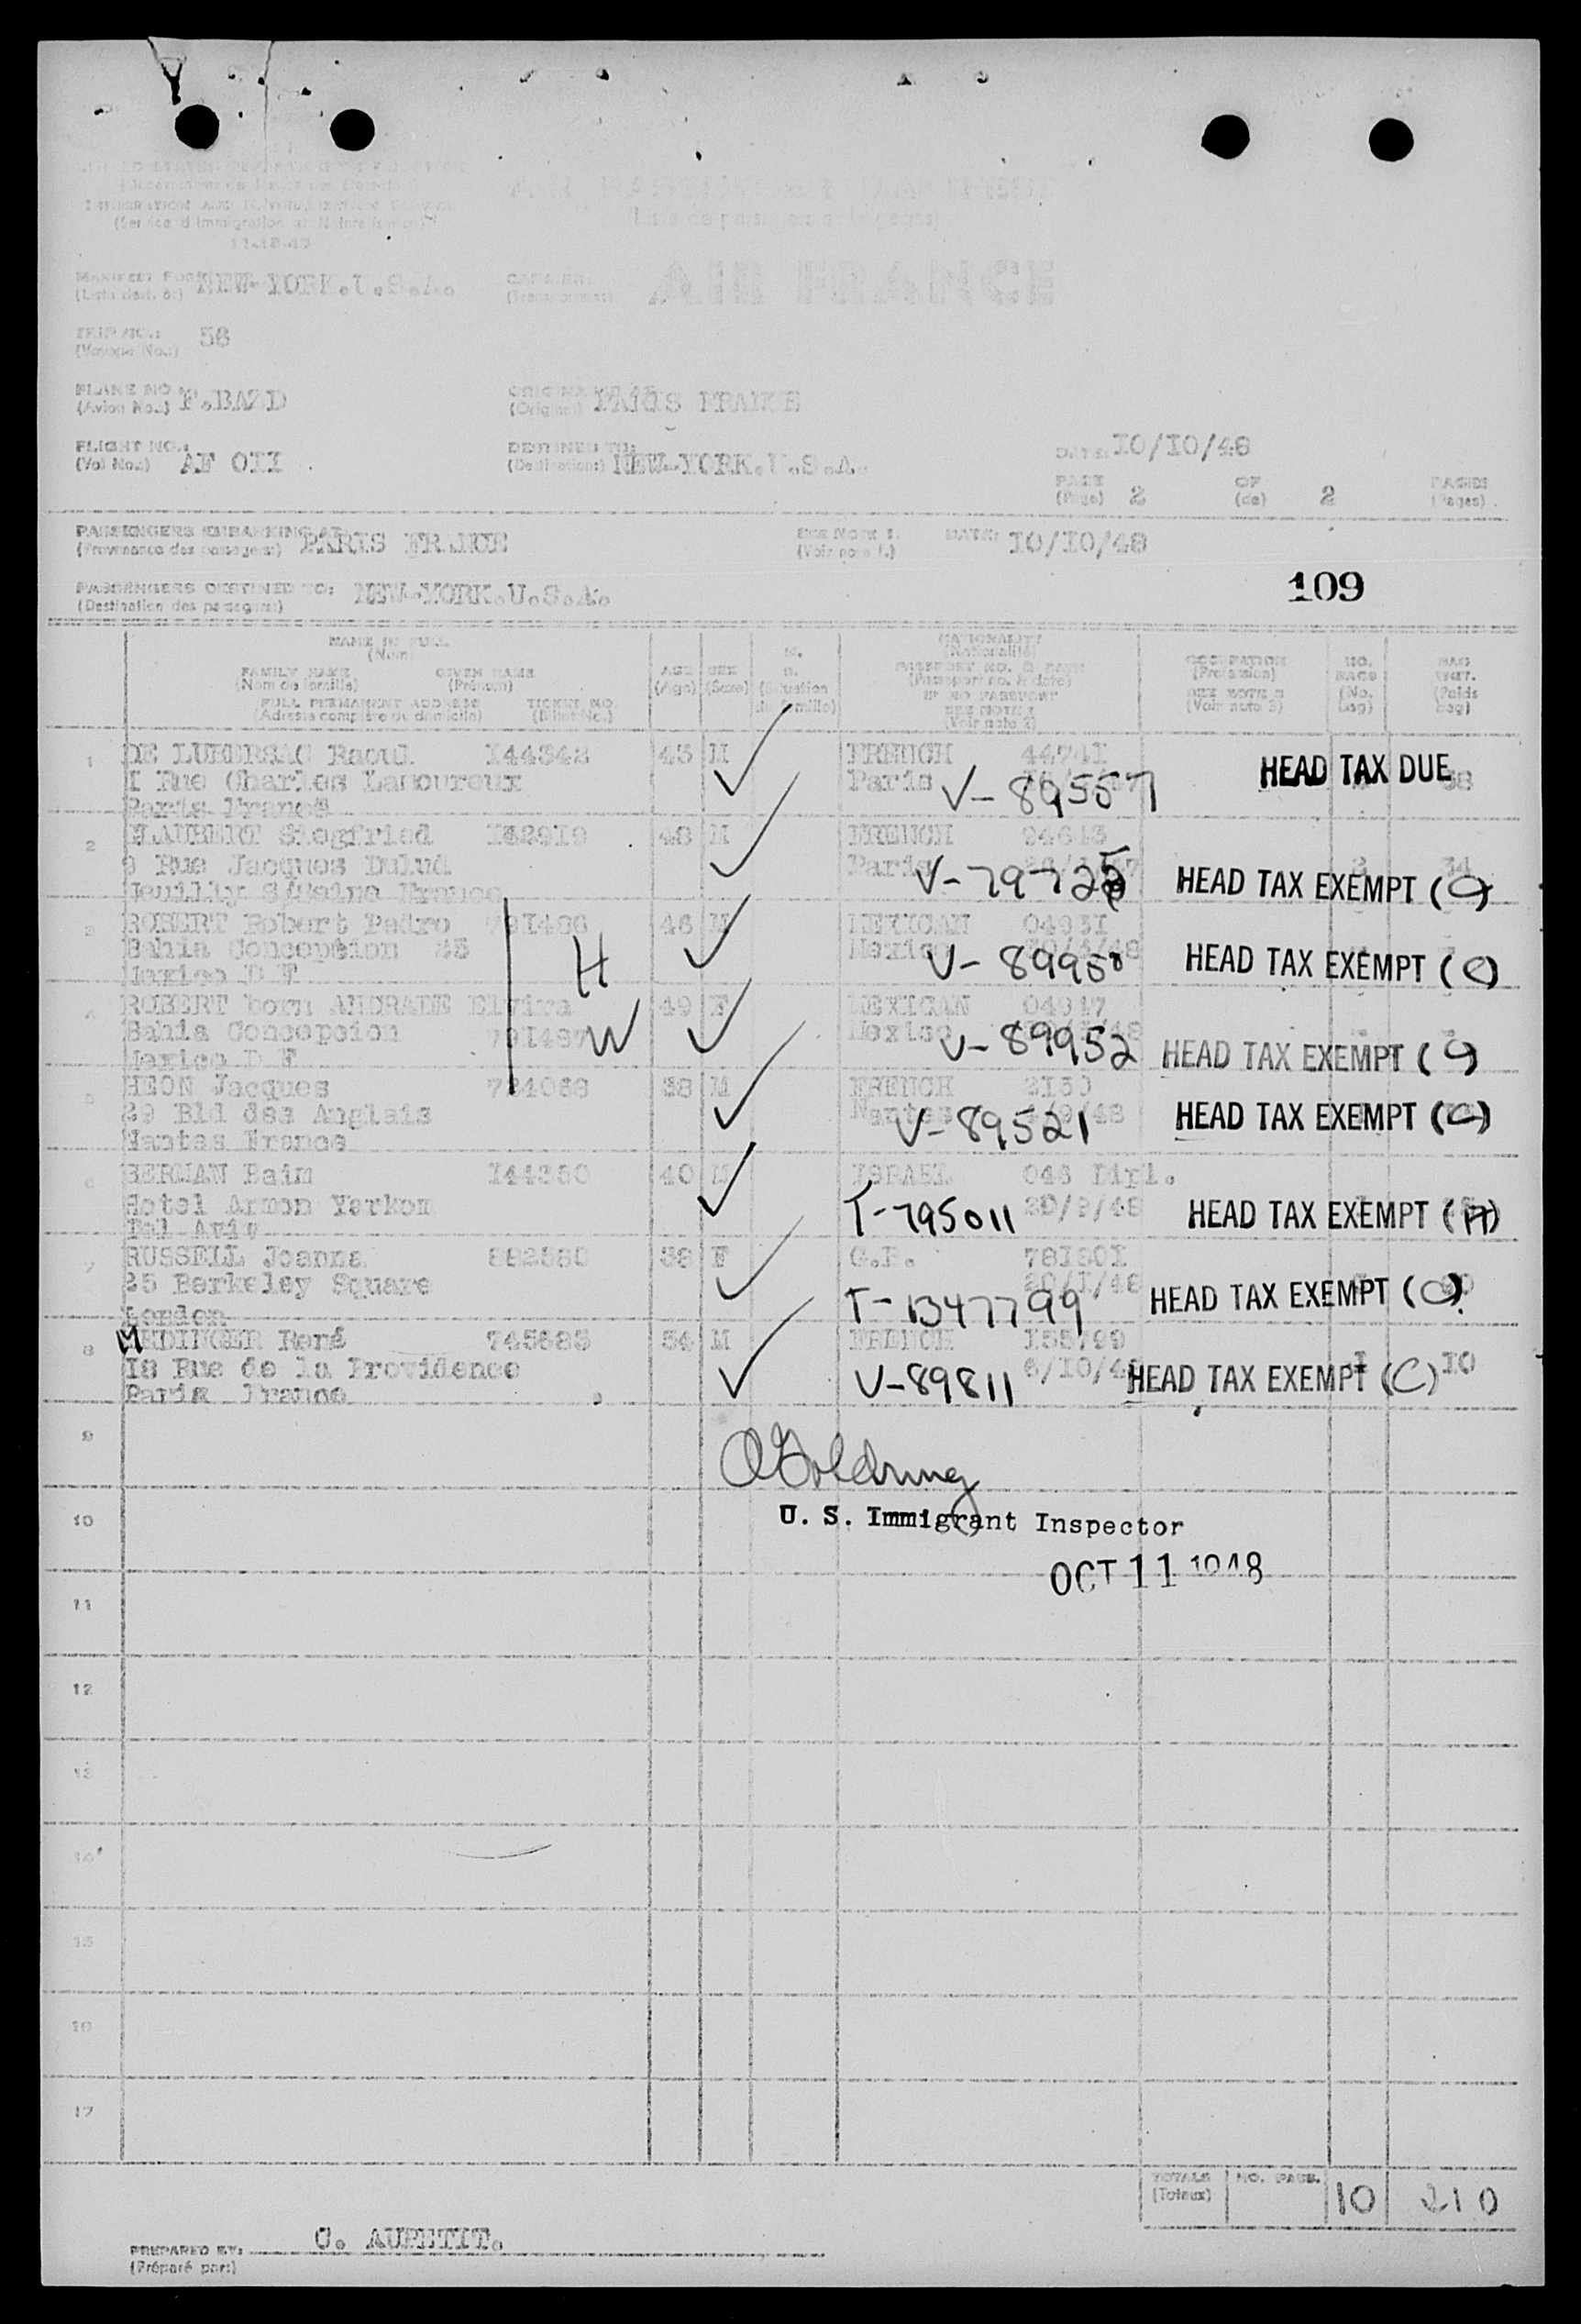 (Service d'Immigration et Naturalisation)
11-18-49
MANIFEST FOR: NEW-YORK.U.S.A. CARRIER: AIR FRANCE
(Liste dest. à:) (Transporteur:)
TRIP NO.: 58
(Voyage No.:)
PLANE NO F.BAZD ORIGINATED AT: PARIS FRANCE
(Avion No.:) (Origine:)
FLIGHT NO.: AF OII DESTINED TO: NEW-YORK.U.S.A. DATE: IO/IO/48
(Vol No.:) (Destination:)
PAGE 2 OF 2 PAGES
(Page) (de) (Pages)
PASSENGERS EMBARKING AT: PARIS FRANCE SEE NOTE 1. DATE: IO/IO/48
(Provenance des passagers:) (Voir note 1.)
109
PASSENGERS DESTINED TO: NEW-YORK.U.S.A.
(Destination des passagers:)
NAME IN FULL NATIONALITY
(Nom) (Nationalité)
FAMILY NAME GIVEN NAME AGE SEX M. PASSPORT NO. & DATE OCCUPATION NO. BAGS BAG WGT.
(Nom de famille) (Prénom) (Age) (Sexe) (Situation de famille) (Passeport no. & date) (Profession) (No. bag) (Poids bag)
FULL PERMANENT ADDRESS TICKET NO. IF NO PASSPORT SEE NOTE 2 SEE NOTE 3
(Adresse complète du domicile) (Billet No.) (Voir note 2) (Voir note 3)
1 DE LUBERSAC Raoul I44342 45 M FRENCH 4474I HEAD TAX DUE
I Rue Charles Lamoureux Paris V-89557
Paris France
2 FLAUBERT Siegfried I32919 48 M FRENCH 94643
9 Rue Jacques Dulud Paris V-79725 HEAD TAX EXEMPT (C)
Neuilly S/Seine France
3 ROBERT Robert Pedro 79I486 46 M MEXICAN 0493I
Bahia Conception 25 H Mexico V-89950 HEAD TAX EXEMPT (C)
Mexico D F
4 ROBERT born ANDRADE Elvira 49 F MEXICAN 04917
Bahia Concepcion 79I487 W Mexico V-89952 HEAD TAX EXEMPT (C)
Mexico D F
5 HEON Jacques 724068 38 M FRENCH 2I50
29 Bld des Anglais Nantes V-89521 HEAD TAX EXEMPT (C)
Nantes France
6 BERMAN Haim I44350 40 M ISRAEL 046 Dipl.
Hotel Armon Yarkon T-795011 20/9/48 HEAD TAX EXEMPT (A)
Tel Aviv
7 RUSSELL Joanna 882580 38 F G.B. 78I80I
25 Berkeley Square 20/I/48 T-1347799 HEAD TAX EXEMPT (C)
London
8 MEDINGER René 745683 54 M FRENCH I55799
I8 Rue de la Providence V-89811 6/IO/48 HEAD TAX EXEMPT (C) IO
Paris France
9
OGoldring
10 U. S. Immigrant Inspector
OCT 11 1948
11
12
13
14
15
16
17
TOTALS NO. PASS. 10 210
(Totaux)
PREPARED BY: C. AUPETIT.
(Préparé par:)